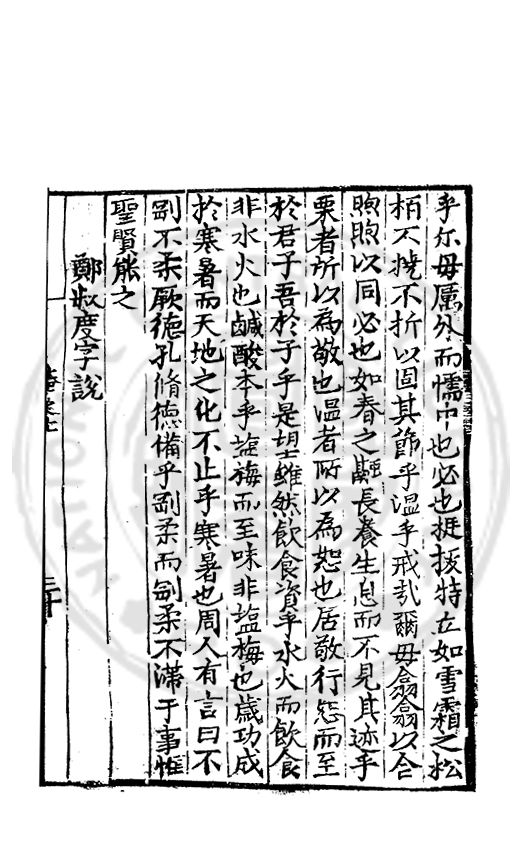 乎尔毋厲外而懦中也必也挺拔特立如雪霜之松
栢不撓不折以固其節乎溫乎戒哉爾毋翕翕以合
煦煦以同必也如春之融長養生息而不見其迹乎
栗者所以為敬也溫者所以為恕也居敬行恕而至
於君子吾於子乎是望雖然飲食資乎水火而飲食
非水火也鹹酸本乎塩梅而至味非塩梅也歲功成
於寒暑而天地之化不止乎寒暑也周人有言曰不
剛不柔厥德孔脩德備乎剛柔而剛柔不滯于事惟
聖賢能之
鄭叔度字說